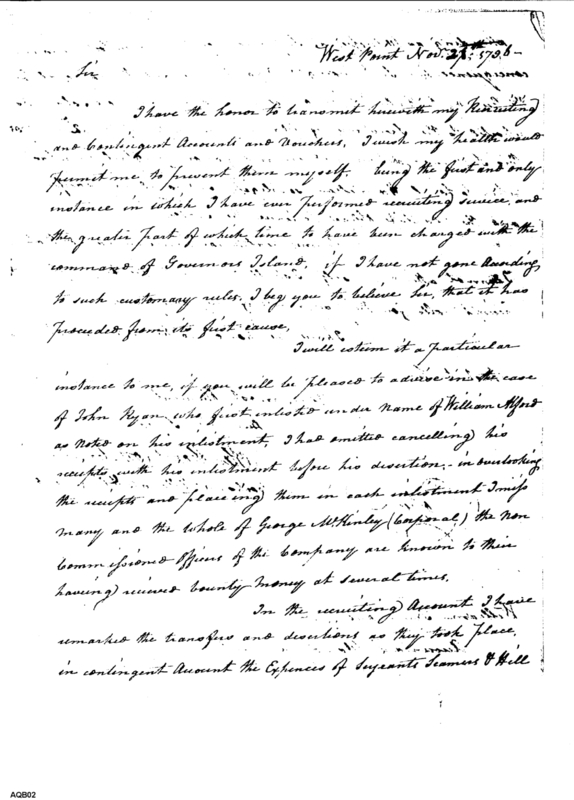 West Point Nov. 27th: 1796-
Sir
I have the honor to transmit herewith my Recruiting
and Contingent Accounts and Vouchers, I wish my health would
permit me to prevent them myself. being the first and only
instance in which I have ever performed recruiting service, and
the greater part of which time to have been charged with the
command of Governors Island, if I have not gone according
to such customary rules, I beg you to believe Sir, that it has
proceeded from its first cause,
I will esteem it a particular
instance to me, if you will be pleased to advise in the case
of John Ryan who first enlisted under name of William Alford
as Noted on his inlistment, I had omitted cancelling his
receipts with his inlistment before his desertion. in overlooking
the receipts and placeing them in each inlistment I miss
many and the whole of George McKinley (Corporal) the Non
Commissioned Officers of the Company are known to their
haveing recieved bounty Money at several times,
In the recruiting Account I have
remarked the transfers and desertions as they took place,
in contingent Account the Expences of Sergeants Seamers & Hill
AQB02